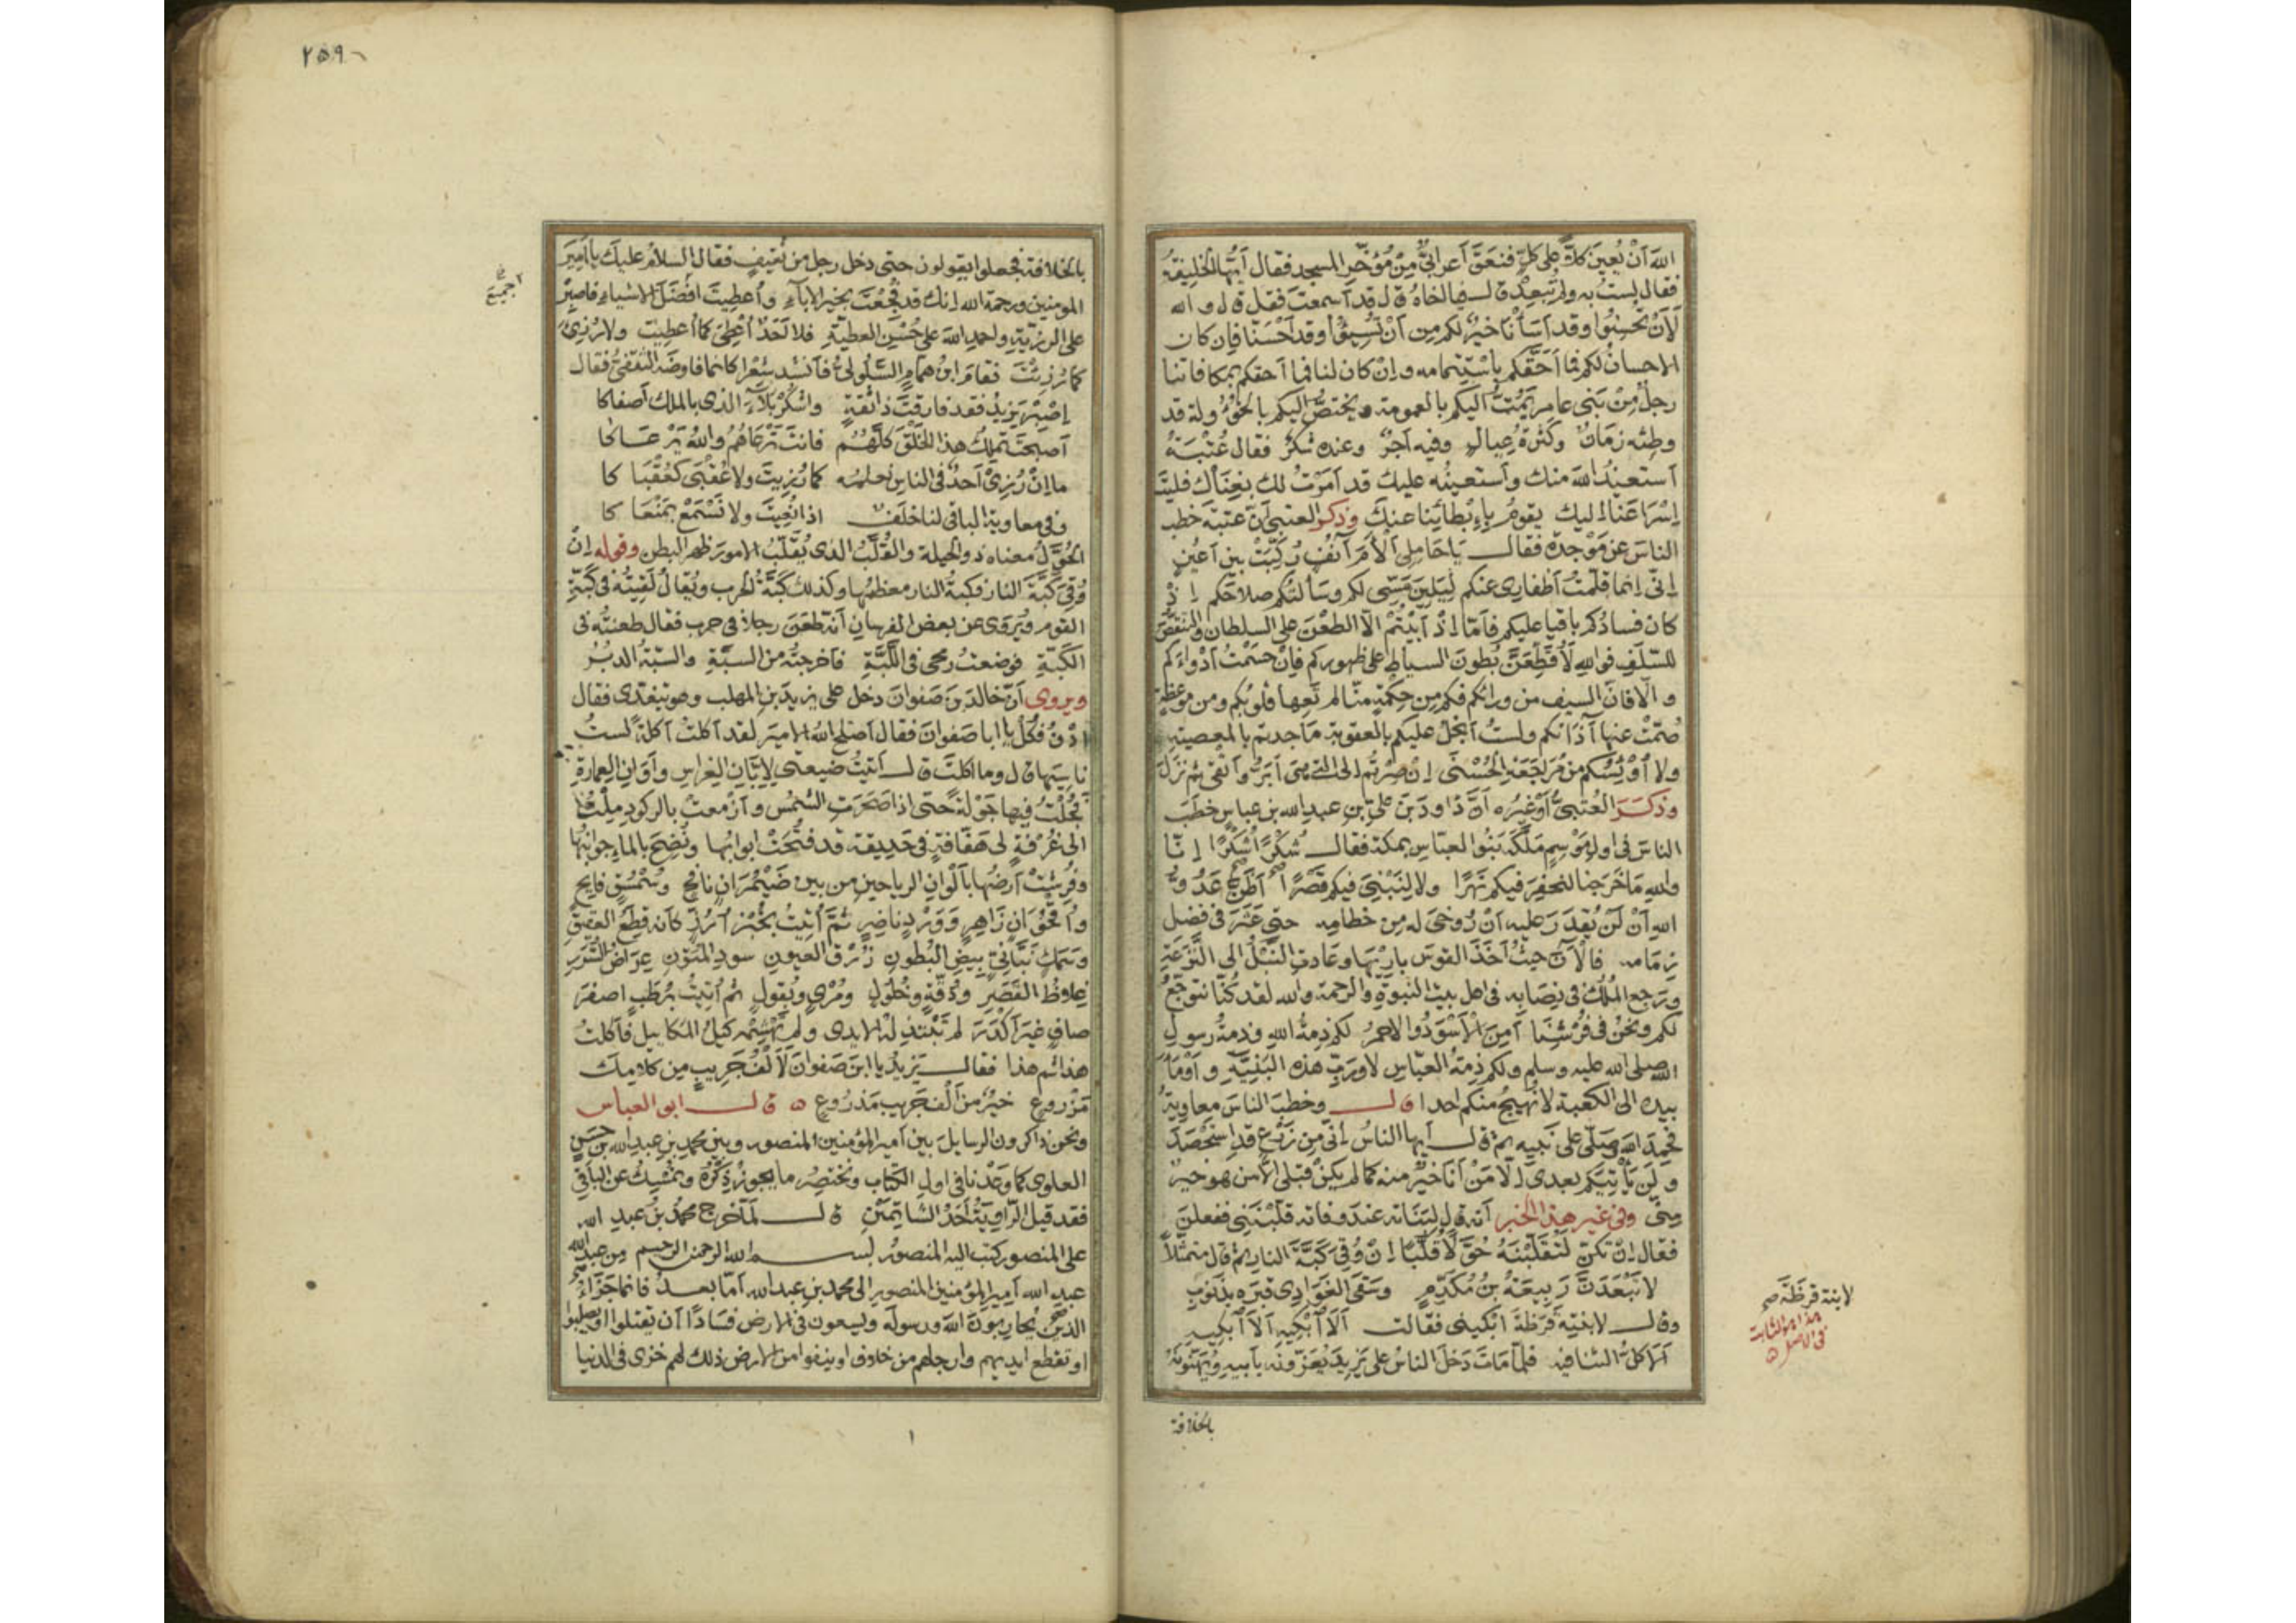 الله أَنْ يُعِينَ كلاًّ على كلٍّ فنعَقَ أعرابيٌّ مِنْ مُؤخَّرِ المسجد فقال أيّها الخليفة
فقال لستُ به ولم تُبعِدْ قال فيا أخاهُ قال قد أسمعتَ فقل قال والله
لَأَنْ تُحسِنُوا وقد أسَأْنَا خيرٌ لكم مِن أنْ تُسِيئُوا وقد أحْسَنَّا فإن كان
الإحسانُ لكم فما أحَقَّكم باستتمامه وإنْ كان لنا فما أحقكم بمكافاتنا
رجلٌ مِنْ بَنِي عامرٍ يَمُتُّ إليكم بالعمومة ويختصُّ إليكم بالخؤولة قد
وطئه زمانٌ وكثرةُ عيالٍ وفيه أجرٌ وعنده شكرٌ فقال عُتْبَةُ
أستعيذُ بالله منك وأستعينُه عليك قد أمَرْتُ لك بغِنَاك فليتَ
إسْرَاعَنا إليك يقومُ بإِبْطَائِنَا عنكَ وذكر العتبيّ أنّ عتبة خطب
الناسَ عن مَوْجِدةٍ فقال يا حاملي ألأمَ آنُفٍ رُكِّبَتْ بين أعينٍ
إنّي إنما قلّمتُ أظفاري عنكم ليَلِينَ مَسّي لكم وسألتُكم صلاحَكم إذْ
كان فسادُكم باقيا عليكم فأمّا إذْ أبَيْتُمْ إلّا الطعْنَ على السلطان والتنقُّصَ
للسّلف فوالله لأُقَطِّعَنَّ بُطونَ السياط على ظهوركم فإنْ حسَمْتُ أدْواءَكم
وإلّا فإنّ السيف من ورائكم فكم مِن حِكْمةٍ منّا لم تَعِها قلوبُكم ومن موعظةٍ
صُمَّتْ عنها آذانكم ولستُ أبخلُ عليكم بالعقوبة ما جدتم بالمعصية
ولا أُوْيِسُكم من مُراجَعَةِ الحُسْنَى إنْ صِرْتم إلى التي هي أبَرُّ وأتقى ثم نزل
وذكَرَ العُتبيُّ أوْغيرُه أنّ داودَ بنَ عليّ بنِ عبدِ الله بن عباسٍ خطَبَ
الناسَ في أولِ مَوْسِمٍ مَلَكَهُ بَنُو العباس بمكة فقال شُكْرًا شُكْرًا إنّا
والله ما خَرَجنا لنحفِرَ فيكم نَهرًا ولا لِنَبْنِيَ فيكم قَصْرًا أظَنَّ عَدُوُّ
الله أنْ لَنْ نَقْدِرَ عليه أنْ رُوخِيَ له مِن خطامِه حتى عَثَرَ في فضل
زِمَامِه فالآنَ حيثُ أخَذَ القوسَ باريها وعادتِ النَّبْلُ إلى النَّزَعَةِ
ورَجع المُلْكُ في نِصَابِه في اهل بيت النبوّةِ والرحمة والله لقد كُنّا نتوجّعُ
لكم ونحْنُ في فُرُشِنَا أمِنَ الأسْوَدُ والاحمرُ لكم ذِمةُ الله وذمةُ رسول
الله صلى الله عليه وسلم ولكم ذِمّةُ العبّاسِ لا وربِّ هذه البَنِيَّةِ وأوْمأَ
بيده الى الكعبة لا نُهيجُ منكم احدا قال وخطب الناسَ معاويةُ
فحمِدَ الله وصلّى على نبيه ثم قال أيها الناسُ إنّي مِن زَرْعٍ قد استَحْصَدَ
ولَنْ يَأتِيَكم بعدي إلّا مَنْ أنا خيرٌ منه كما لم يكنْ قبلي إلّا من هو خيرٌ
منّي وفي غير هذا الخبر أنه قال لِبَنَاتِه عند وفاته قلِّبْنَني ففعلنَ
فقال إنّكنّ لتُقَلِّبْنَهُ حُوَّلًا قُلَّبًا إنْ وُقِيَ كَبَّةَ النارِ ثم قال متمثّلاً
لا تَبْعَدَنَّ رَبِيعَةُ بنُ مُكَدَّمٍ وسَقَى الغَوَادِي قبرَه بذَنُوبِ
وقال لابنتِه قَرَظَةَ ابْكيني فقالت ألَا أبْكِيهِ ألَا أبْكِيهِ
ألَا كلُّ الفتى فيه فلمّا مَاتَ دَخلَ الناسُ على يَزِيدَ يُعَزّونَه بأبيه ويُهَنّونَهُ
بالخلافة
لابنة قرظَةَ صح
هذا هو الثابت
في الاصل
٢٥٩
بالخلافة فجعلوا يقولون حتى دخل رجل من ثقيفٍ فقال السلامُ عليكَ يا أميرَ
المؤمنين ورحمة الله إنك قد فُجِعْتَ بخيرِ الآباءِ وأُعطِيتَ أفضلَ الاشياء فاصبرْ
على الرزيّةِ واحمدِ اللهَ على حُسْنِ العطيّةِ فلا أحَدٌ أُعْطِيَ كما أُعطِيتَ ولا رُزِئَ
كما رُزِئْتَ فقام ابنُ همّامٍ السَّلُولِيُّ فأنشد شعْرا كانما فاوضَه الثقفيُّ فقال
اِصْبِرْ يَزِيدُ فقد فارقتَ ذا ثقةٍ واشْكُرْ بَلاءَ الذي بالملك أصفاكا
أصبحتَ تَملِكُ هذا الخَلْقَ كلَّهُمُ فانتَ تَرْعَاهُمُ واللهُ يَرْعَاكا
ما إنْ رُزِيْ أحَدٌ في الناسِ نعلمُه كما رُزِيتَ ولا عُقْبَى كعُقْبَاكا
وفي معاوية الباقي لنا خلَفٌ اذا نُعِيتَ ولا نَسْمَعْ بمَنْعَاكا
الحُوَّلُ معناه ذو الحيلة والقُلَّبُ الذي يُقَلِّبُ الامورَ ظهرا لبطن وقوله إنْ
وُقِيَ كَبّةَ النار فكبةُ النار معظمُها وكذلك كَبّةُ الحرب ويُقالُ لَقِيتُه في كَبّةِ
القوم ويُروَى عن بعض الفرسان أنه طَعَنَ رجلاً في حربٍ فقال طعنتُه في
الكَبّةِ فوضعتُ رمحي في اللَّبّةِ فأخرجتُه من السبّةِ والسّبّةُ الدبُرُ
ويروى أنّ خالدَ بنَ صَفوانَ دخل على يزيدَ بنِ المهلب وهو يتغدّى فقال
ادْنُ فكُلْ يا ابا صَفوانَ فقال أصلح اللهُ الاميرَ لقد أكلتُ أكلةً لستُ
ناسيَها قال وما أكلتَ قال أتيتُ ضيعتي لإبّانِ الغِراسِ وأوانِ العِمارةِ
فجُلْتُ فيها جَوْلةً حتى إذا صَخَدَتِ الشمسُ وأزْمعتْ بالركودِ مِلْتُ
الى غُرْفةٍ لي هَفّافةٍ في حَدِيقة قد فُتِحَتْ ابوابُها ونُضِحَ بالماءِ جوانبُها
وفُرِشتْ أرضُها بألْوانِ الرياحينِ من بين ضَيْمُرَانٍ نافحٍ وسُمْسُقٍ فايح
وأُقْحُوَانٍ زَاهِرٍ وَوَرْدٍ ناضِرٍ ثُمَّ أُتِيتُ بخُبْزِ أرُزٍّ كأنه قِطَعُ العقيقِ
وسَمَكٍ بُنَانِيٍّ بِيضِ البُطُونِ زُرْقِ العيونِ سودِ المُتونِ عِرَاضِ السُّرَرِ
غلاظِ القَصَرِ ودُقّةٍ وخُلولٍ ومُرْيٍ وبُقولٍ ثم أُتيتُ برُطَبٍ اصفرَ
صافٍ غيرَ أكْدَرَ لم تَبْتذِلْه الايدي ولم يَهْشِمْه كَيْلُ المكاييل فأكلتُ
هذا ثم هذا فقال يَزِيدُ يا ابنَ صَفوانَ لَأَلْفُ جَرِيبٍ مِن كلامِكَ
مَزْروعٍ خيرٌ من ألْفِ جَرِيبٍ مَذْرُوعٍ ه قال ابو العباس
ونحن ذاكرون الرسايلَ بين أمير المؤمنين المنصور وبين محمدِ بنِ عبدِ الله بن حسَنٍ
العلوي كما وعَدْنا في اول الكتاب ونختصِرُ ما يجوزُ ذِكْرُهُ ونُمسِكُ عن الباقي
فقد قيل الرّاويَةُ أحَدُ الشّاتِمَيْنِ قال لمّا خرج محمدُ بنُ عبدِ الله
على المنصورِ كتب اليه المنصورُ بسم الله الرحمن الرحيم مِن عبد الله
عبدِ الله أمير المؤمنين المنصورِ الى محمدِ بنِ عبدِ الله أمّا بعدُ فانما جَزَاءُ
الذينَ يُحارِبونَ اللهَ ورسولَه ويسعون في الارض فسَادًا أن يقتلوا او يصلبوا
او تقطع ايديهم وارجلهم من خلاف او ينفوا من الارض ذلك لهم خزى في الدنيا